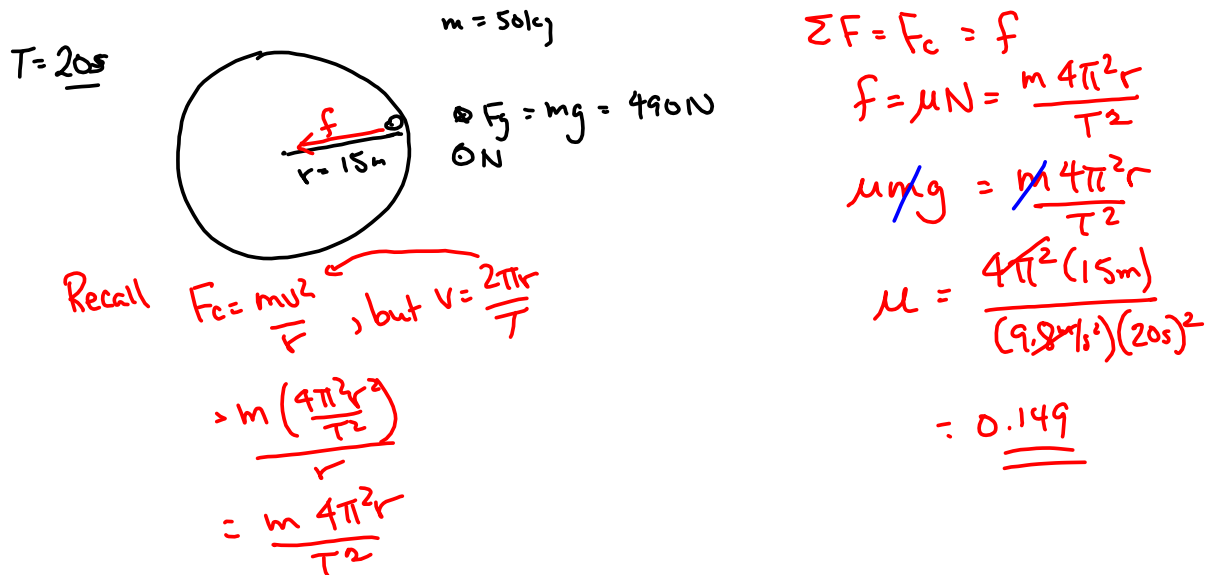 m = 50kg
T = 20s
f
r = 15m
⊗ Fg = mg = 490N
⊙ N
Recall Fc = mv²/r , but v = 2πr/T
= m (4π²r²/T²) / r
= m 4π²r / T²
ΣF = Fc = f
f = μN = m 4π²r / T²
μmg = m 4π²r / T²
μ = 4π² (15m) / (9.8m/s²)(20s)²
= 0.149